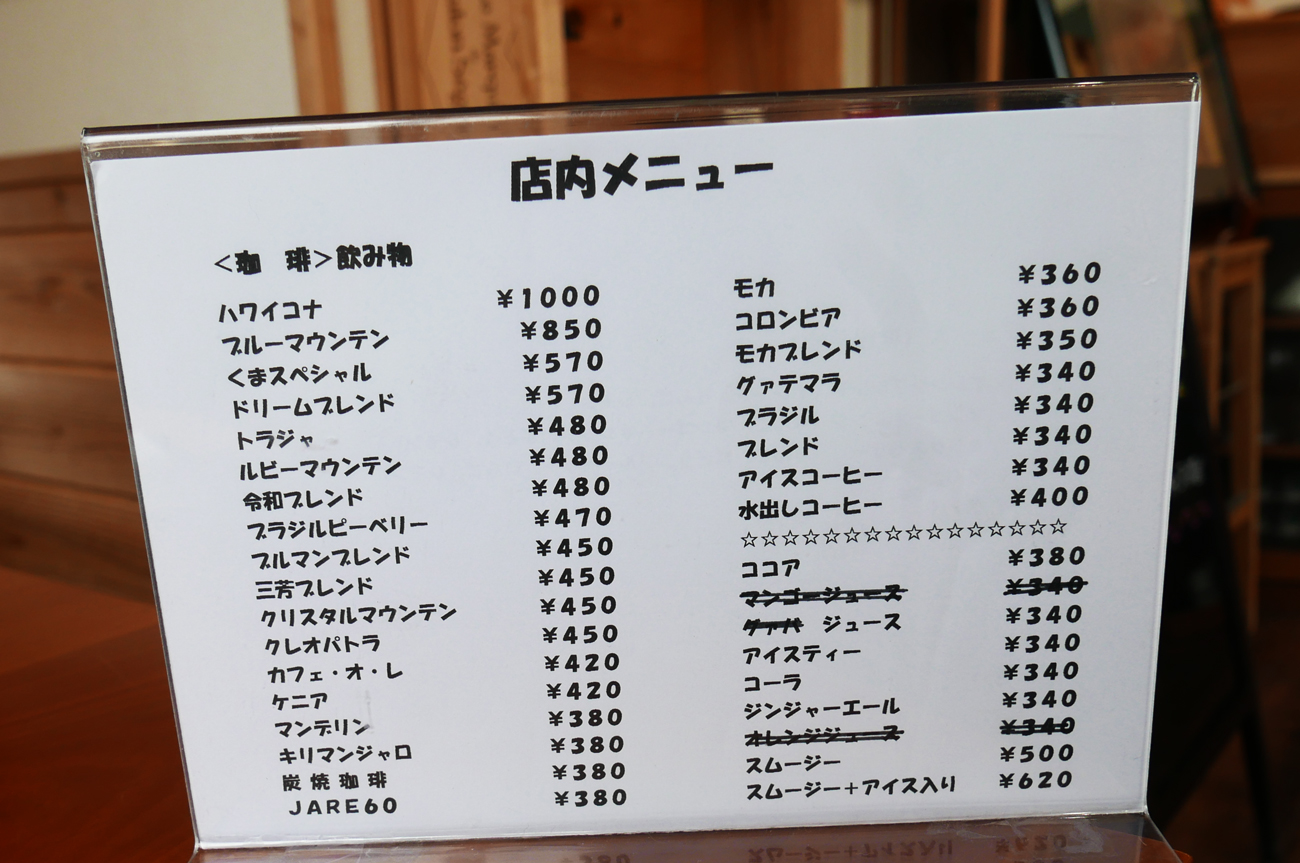 店内メニュー
＜珈　琲＞飲み物
ハワイコナ ¥1000
ブルーマウンテン ¥850
くまスペシャル ¥570
ドリームブレンド ¥570
トラジャ ¥480
ルビーマウンテン ¥480
令和ブレンド ¥480
ブラジルピーベリー ¥470
ブルマンブレンド ¥450
三芳ブレンド ¥450
クリスタルマウンテン ¥450
クレオパトラ ¥450
カフェ・オ・レ ¥420
ケニア ¥420
マンデリン ¥380
キリマンジャロ ¥380
炭焼珈琲 ¥380
JARE60 ¥380
モカ ¥360
コロンビア ¥360
モカブレンド ¥350
グァテマラ ¥340
ブラジル ¥340
ブレンド ¥340
アイスコーヒー ¥340
水出しコーヒー ¥400
☆☆☆☆☆☆☆☆☆☆☆☆☆☆☆☆
ココア ¥380
マンゴージュース ¥340
グァバ ジュース ¥340
アイスティー ¥340
コーラ ¥340
ジンジャーエール ¥340
オレンジジュース ¥340
スムージー ¥500
スムージー＋アイス入り ¥620